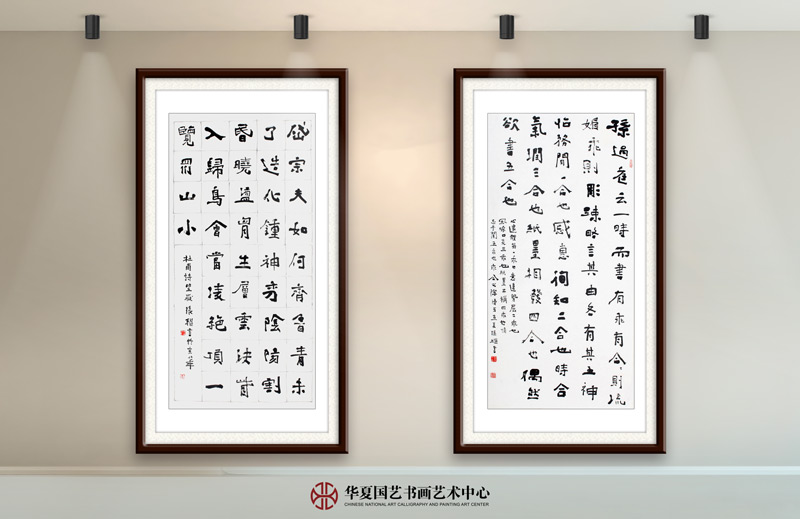 岱宗夫如何齊魯青未
了造化鍾神秀陰陽割
昏曉盪胷生層雲決眥
入歸鳥會當凌絕頂一
覽眾山小
杜甫詩望嶽
孫過庭云一時而書有乖有合合則流
媚乖則彫疎略言其由各有其五神
怡務閒一合也感惠徇知二合也時和
氣潤三合也紙墨相發四合也偶然
欲書五合也
华夏国艺书画艺术中心
CHINESE NATIONAL ART CALLIGRAPHY AND PAINTING ART CENTER